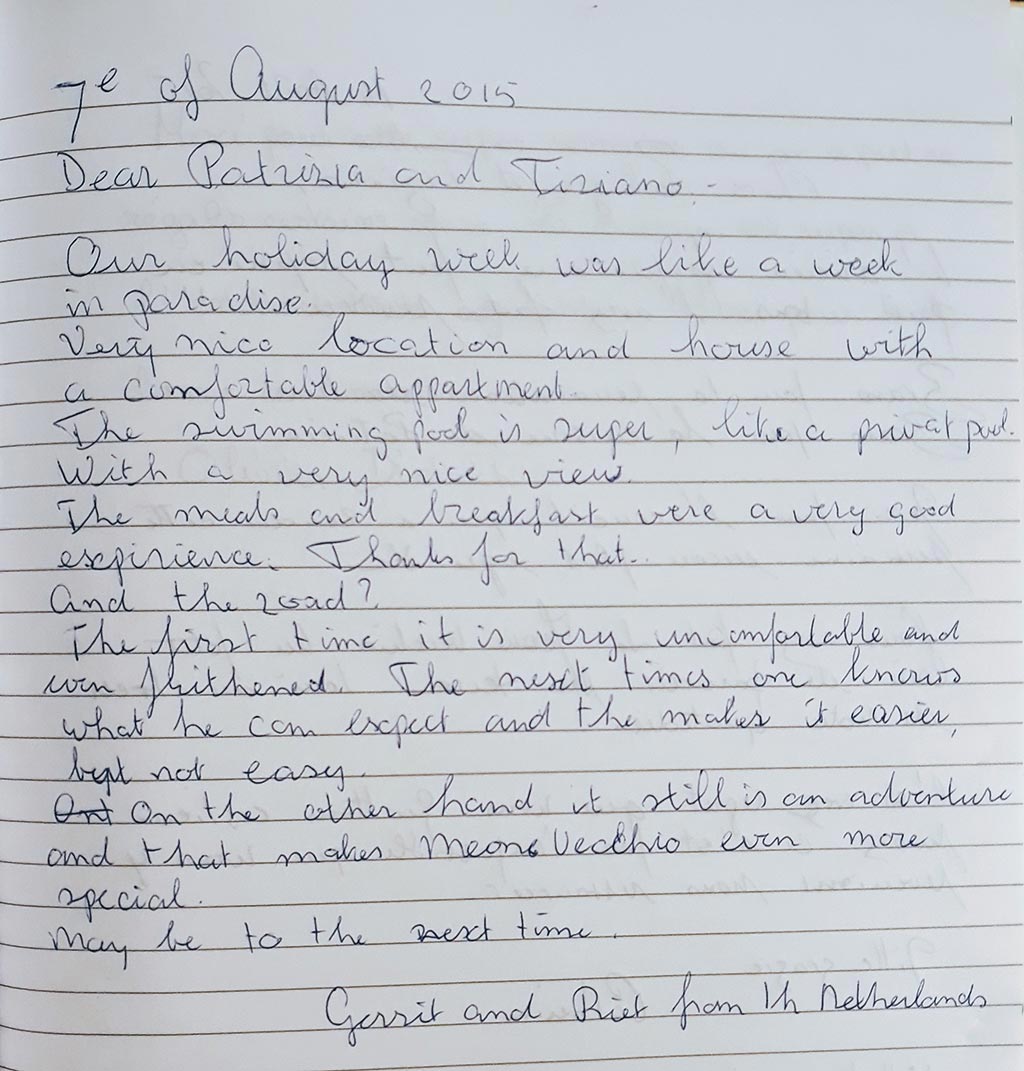 7e of August 2015
Dear Patrizia and Tiziano.
Our holiday week was like a week
in paradise.
Very nice location and house with
a comfortable appartment.
The swimming pool is super, like a privat pool.
With a very nice view.
The meals and breakfast were a very good
expirience. Thanks for that.
And the road?
The first time it is very uncomfortable and
even frithened. The next times one knows
what he can expect and the makes it easier,
but not easy.
On the other hand it still is an adventure
and that makes Meone Vecchio even more
special.
May be to the next time.
Gerrit and Riet from th Netherlands